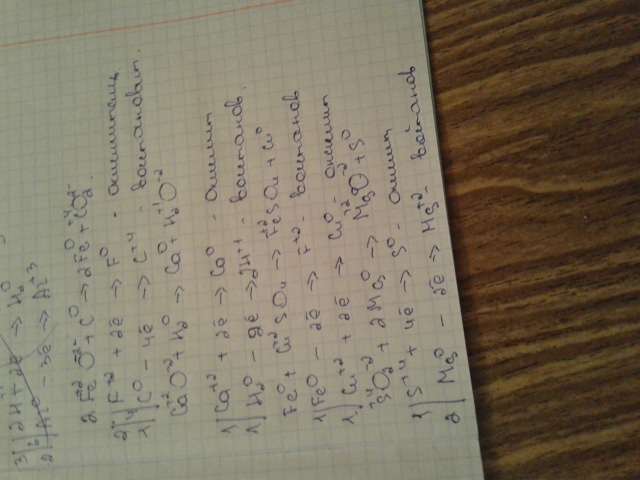 3) 2H + 2ē → H₂⁰
2) Al⁰ - 3ē → Al⁺³
2Fe⁺²O⁻² + C⁰ → 2Fe⁰ + C⁺⁴O₂²⁻
2) F⁺² + 2ē → F⁰ - окислитель
1) C⁰ - 4ē → C⁺⁴ - восстановит.
Ca⁺²O⁻² + H₂⁰ → Ca⁰ + H₂⁺¹O⁻²
1) Ca⁺² + 2ē → Ca⁰ - окислит
1) H₂⁰ - 2ē → 2H⁺¹ - восстанов.
Fe⁰ + Cu⁺²SO₄ → Fe⁺²SO₄ + Cu⁰
1) Fe⁰ - 2ē → F⁺² - восстанов
1) Cu⁺² + 2ē → Cu⁰ - окислит
S⁺⁴O₂⁻² + 2Mg⁰ → Mg⁺²O⁻² + S⁰
1) S⁺⁴ + 4ē → S⁰ - окислит
2) Mg⁰ - 2ē → Mg⁺² - востанов